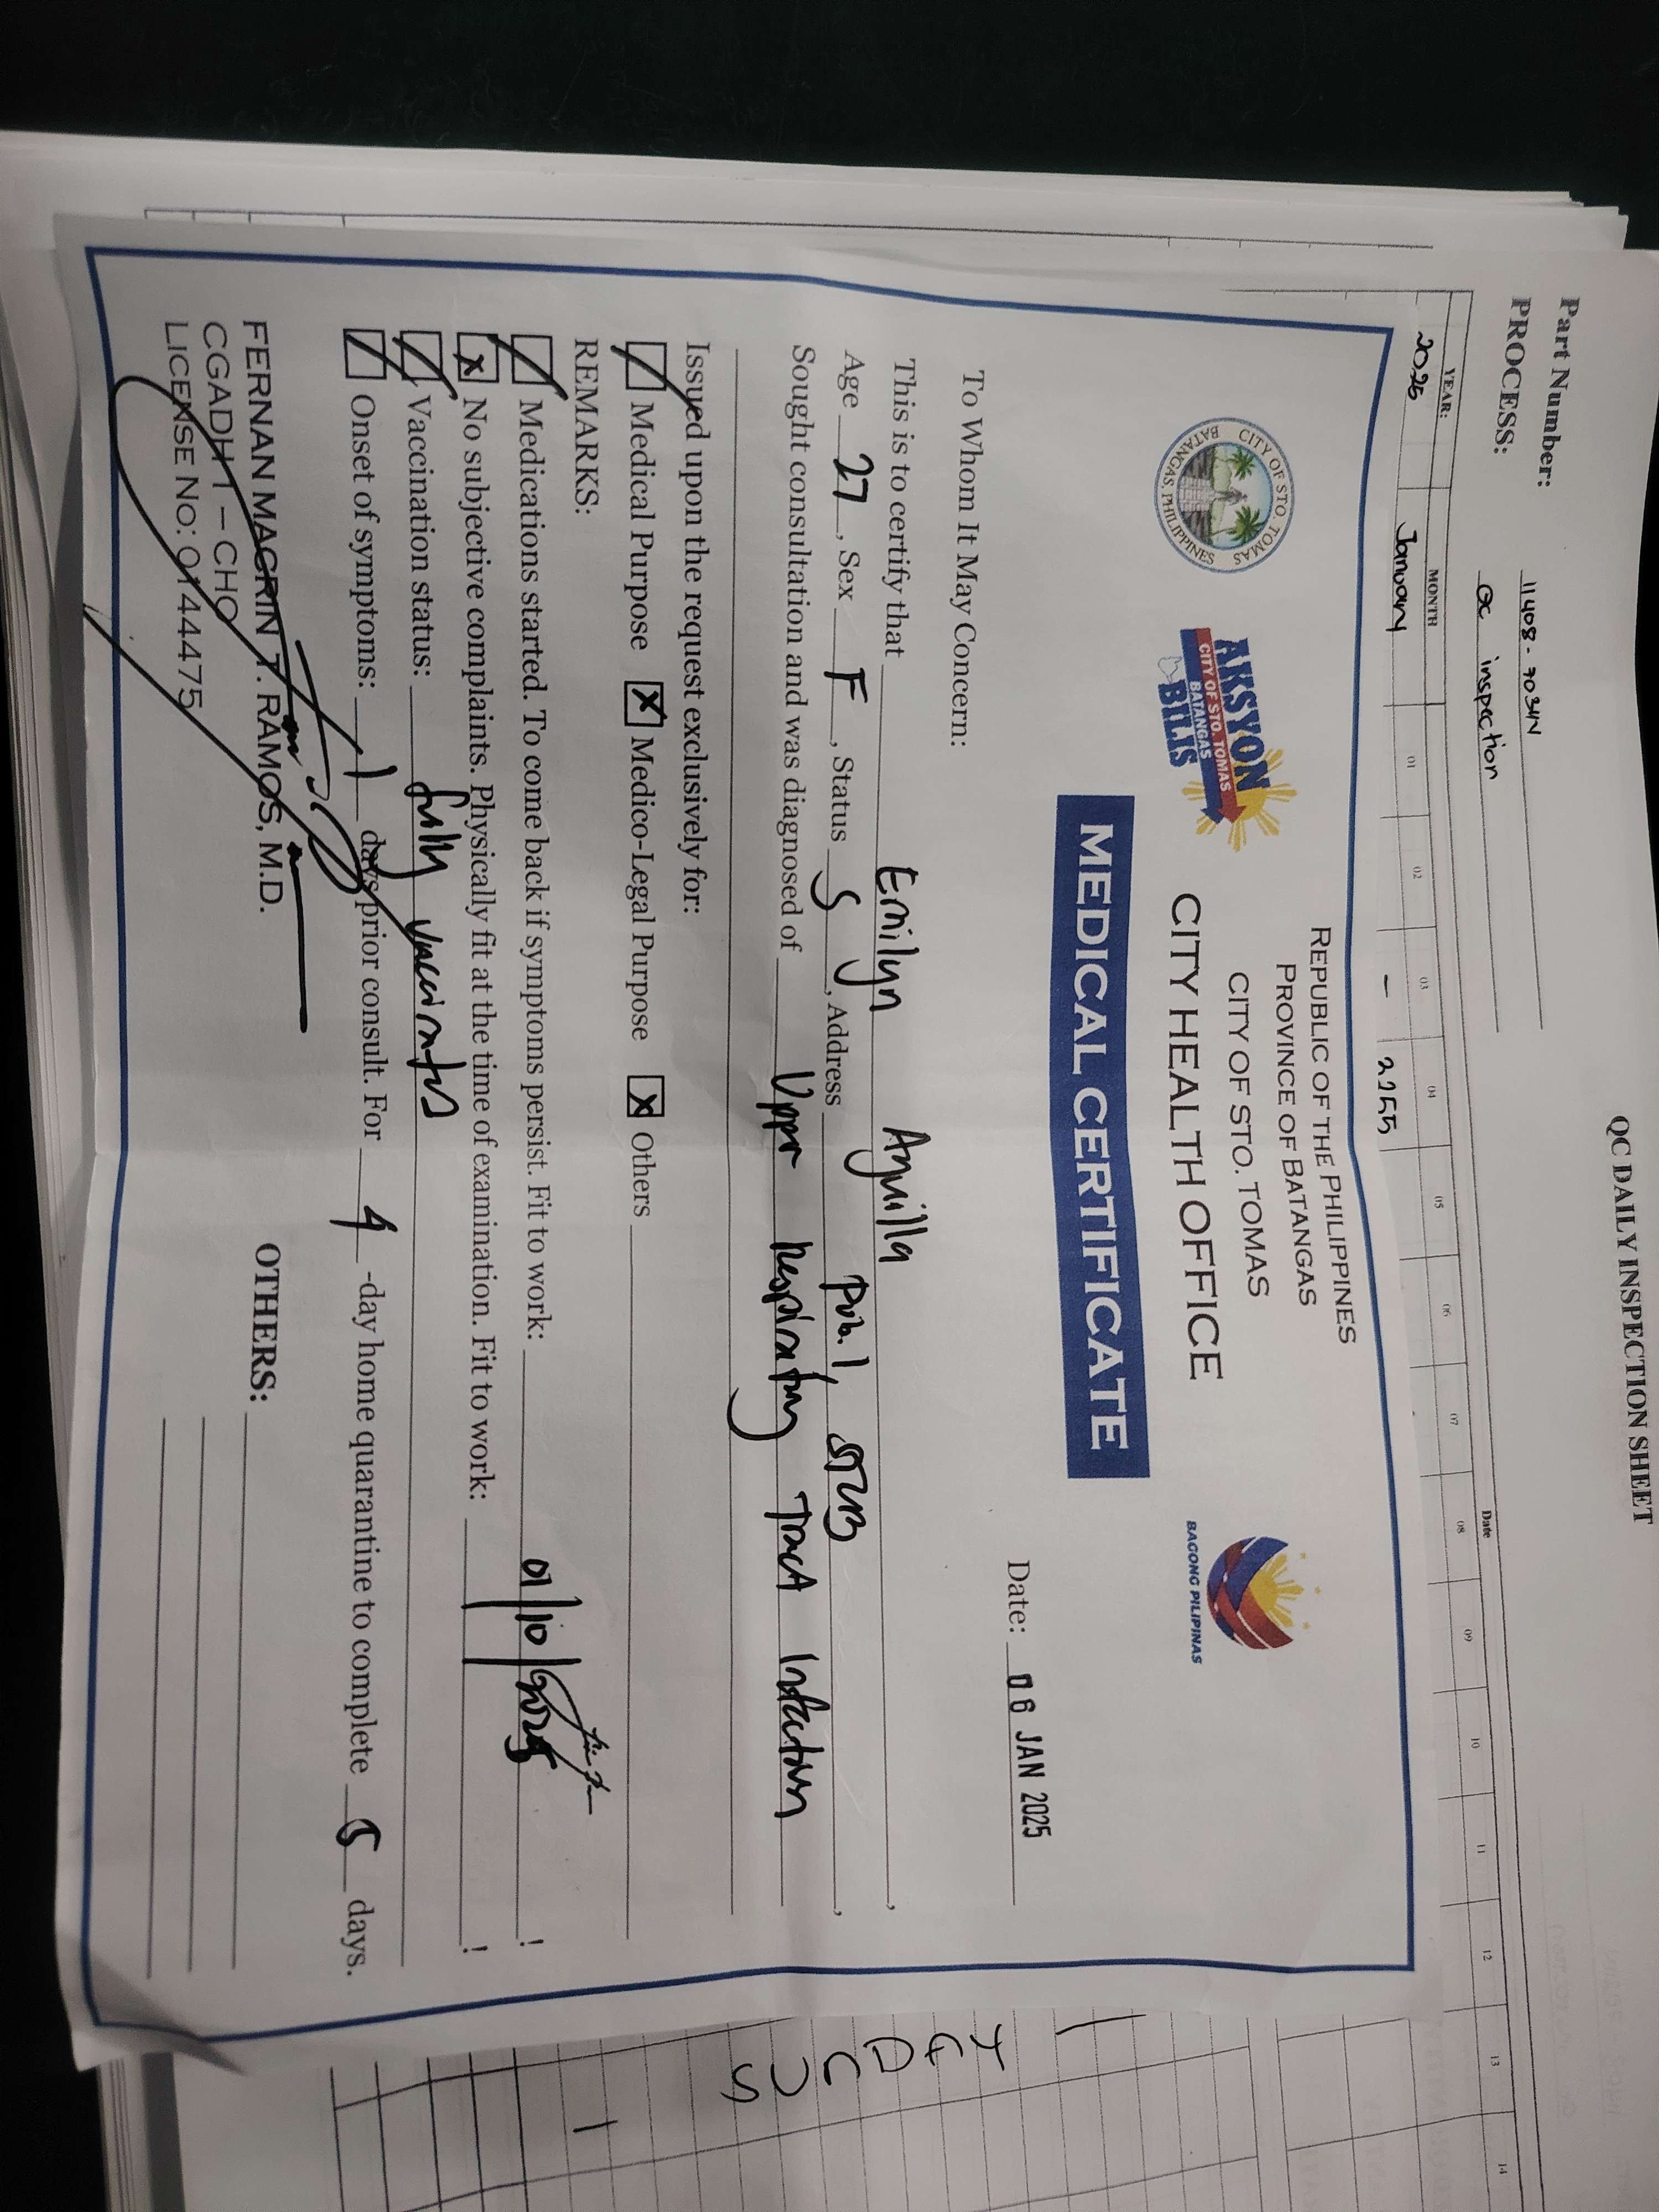 QC DAILY INSPECTION SHEET
Part Number: 11408-7034N
PROCESS: QC inspection
YEAR: MONTH Date
01 02 03 04 05 06 07 08 09 10 11 12 13 14
2025 January - 2255
REPUBLIC OF THE PHILIPPINES
PROVINCE OF BATANGAS
CITY OF STO. TOMAS
CITY HEALTH OFFICE
CITY OF STO. TOMAS
BATANGAS, PHILIPPINES
AKSYON
CITY OF STO. TOMAS
BATANGAS
BILIS
BAGONG PILIPINAS
MEDICAL CERTIFICATE
Date: 06 JAN 2025
To Whom It May Concern:
This is to certify that Emilyn Aguilla,
Age 27, Sex F, Status S, Address Pob. 1, STB,
Sought consultation and was diagnosed of Upper Respiratory Tract Infection
Issued upon the request exclusively for:
Medical Purpose x Medico-Legal Purpose x Others
REMARKS:
Medications started. To come back if symptoms persist. Fit to work: 01/10/2025!
x No subjective complaints. Physically fit at the time of examination. Fit to work: !
Vaccination status: fully vaccinated
Onset of symptoms: 1 days prior consult. For 4 -day home quarantine to complete 5 days.
FERNAN MAGRIN T. RAMOS, M.D.
CGADH 1 – CHO
LICENSE NO: 0144475
OTHERS: